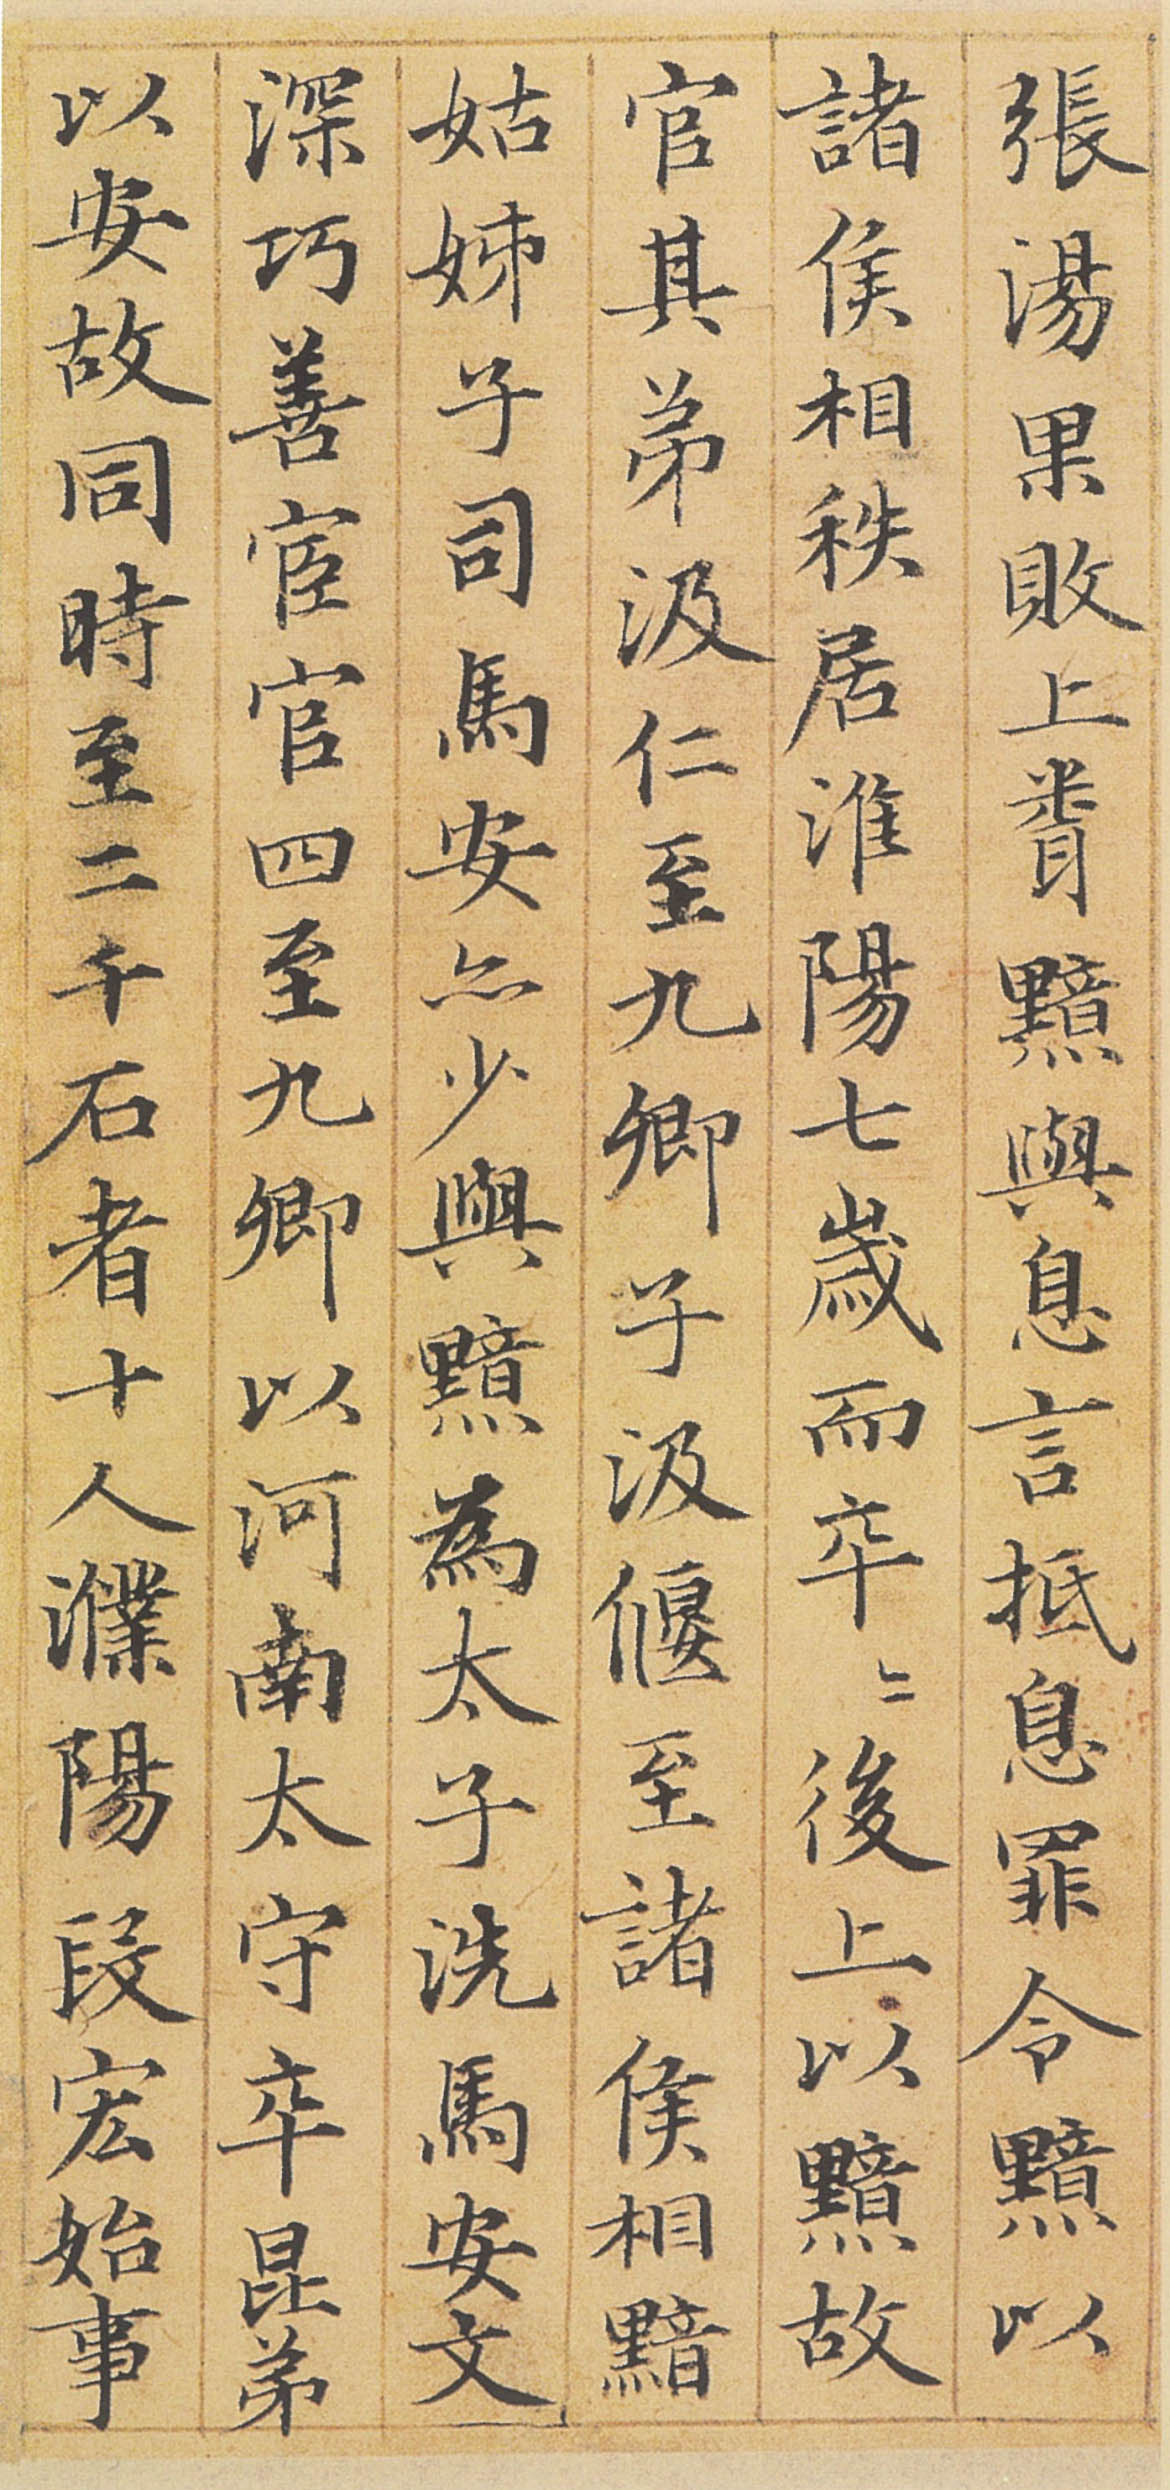 張湯果敗上聞黯與息言抵息罪令黯以
諸侯相秩居淮陽七歲而卒〻後上以黯故
官其弟汲仁至九卿子汲偃至諸侯相黯
姑姊子司馬安亦少與黯為太子洗馬安文
深巧善宦官四至九卿以河南太守卒昆弟
以安故同時至二千石者十人濮陽段宏始事